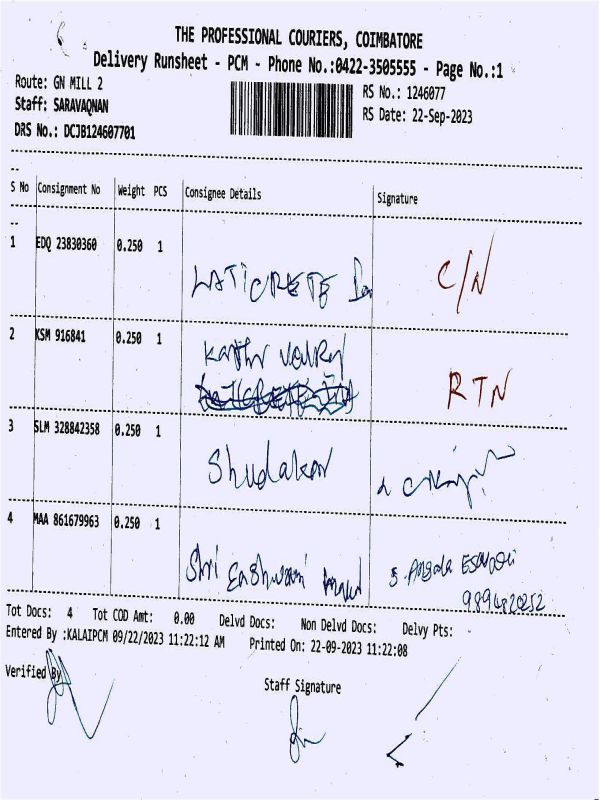 THE PROFESSIONAL COURIERS, COIMBATORE
Delivery Runsheet - PCM - Phone No.:0422-3505555 - Page No.:1
Route: GN MILL 2
Staff: SARAVAQNAN
DRS No.: DCJB124607701
RS No.: 1246077
RS Date: 22-Sep-2023
S No Consignment No Weight PCS Consignee Details Signature
1 EDQ 23830360 0.250 1 LATICRETE C/N
2 KSM 916841 0.250 1 RTN
3 SLM 328842358 0.250 1 Shudakar
4 MAA 861679963 0.250 1 Shri
9894820252
Tot Docs: 4 Tot COD Amt: 0.00 Delvd Docs: Non Delvd Docs: Delvy Pts:
Entered By :KALAIPCM 09/22/2023 11:22:12 AM Printed On: 22-09-2023 11:22:08
Verified By
Staff Signature